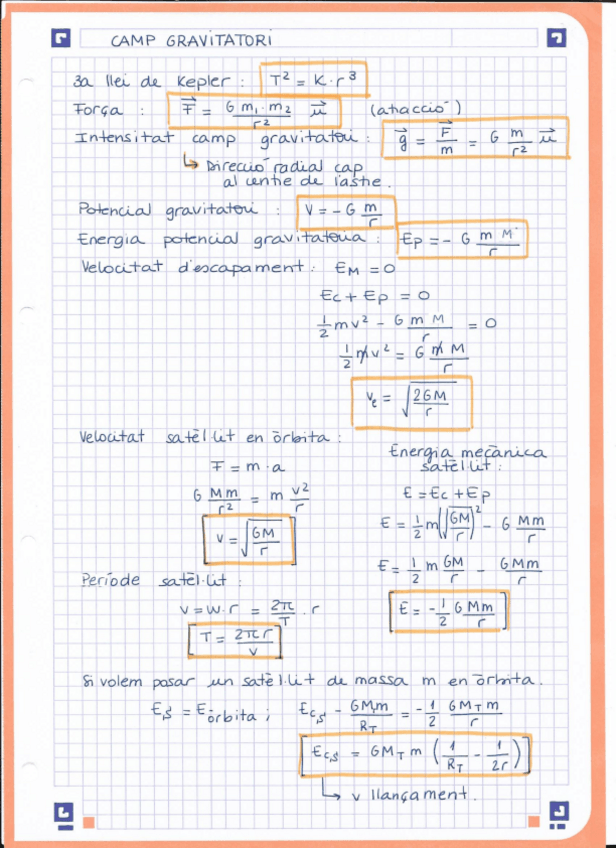 CAMP GRAVITATORI
3a llei de Kepler : T² = K · r³
Força : F⃗ = G m₁·m₂ / r² u⃗ (atracció)
Intensitat camp gravitatori : g⃗ = F⃗ / m = G m / r² u⃗
↳ Direcció radial cap
al centre de l'astre.
Potencial gravitatori : V = - G m / r
Energia potencial gravitatoria : Ep = - G m M / r
Velocitat d'escapament : EM = 0
Ec + Ep = 0
1/2 mv² - G m M / r = 0
1/2 mv² = G m M / r
ve = √(2GM / r)
Velocitat satèl·lit en òrbita :
F = m · a
G Mm / r² = m v² / r
v = √(GM / r)
Energia mecànica
satèl·lit :
E = Ec + Ep
E = 1/2 m(√(GM / r))² - G Mm / r
E = 1/2 m GM / r - GMm / r
E = - 1/2 G Mm / r
Període satèl·lit :
v = w · r = 2π / T · r
T = 2π r / v
Si volem posar un satèl·lit de massa m en òrbita.
E,s = E òrbita ; Ec,s - GMm / RT = - 1/2 GMT m / r
Ec,s = GMT m (1 / RT - 1 / 2r)
↳ v llançament.